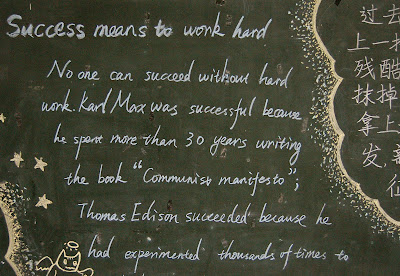 Success means to work hard
No one can succeed without hard
work. Karl Marx was successful because
he spent more than 30 years writing
the book "Communist manifesto";
Thomas Edison succeeded because he
had experimented thousands of times to
过去
上一
残酷
抹掉
拿上
发,
征